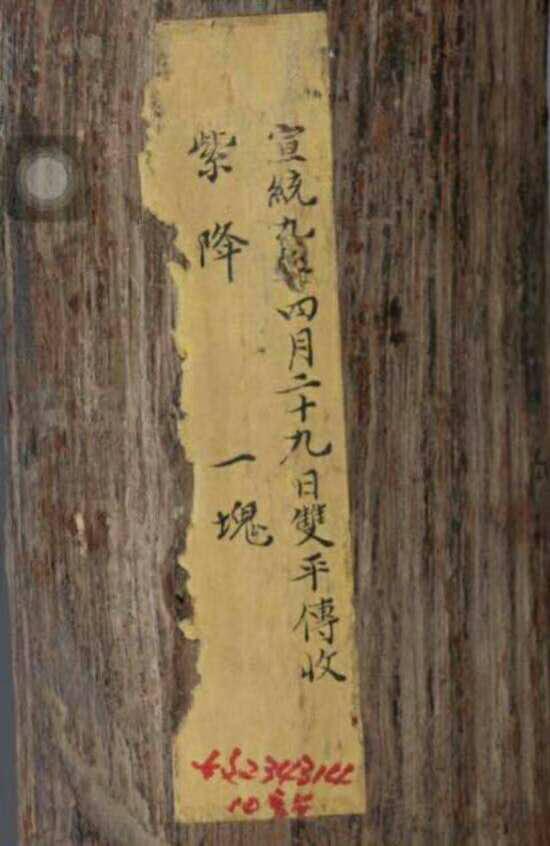 宣統九年四月二十九日雙平傳收
紫降 一塊
2343144
10